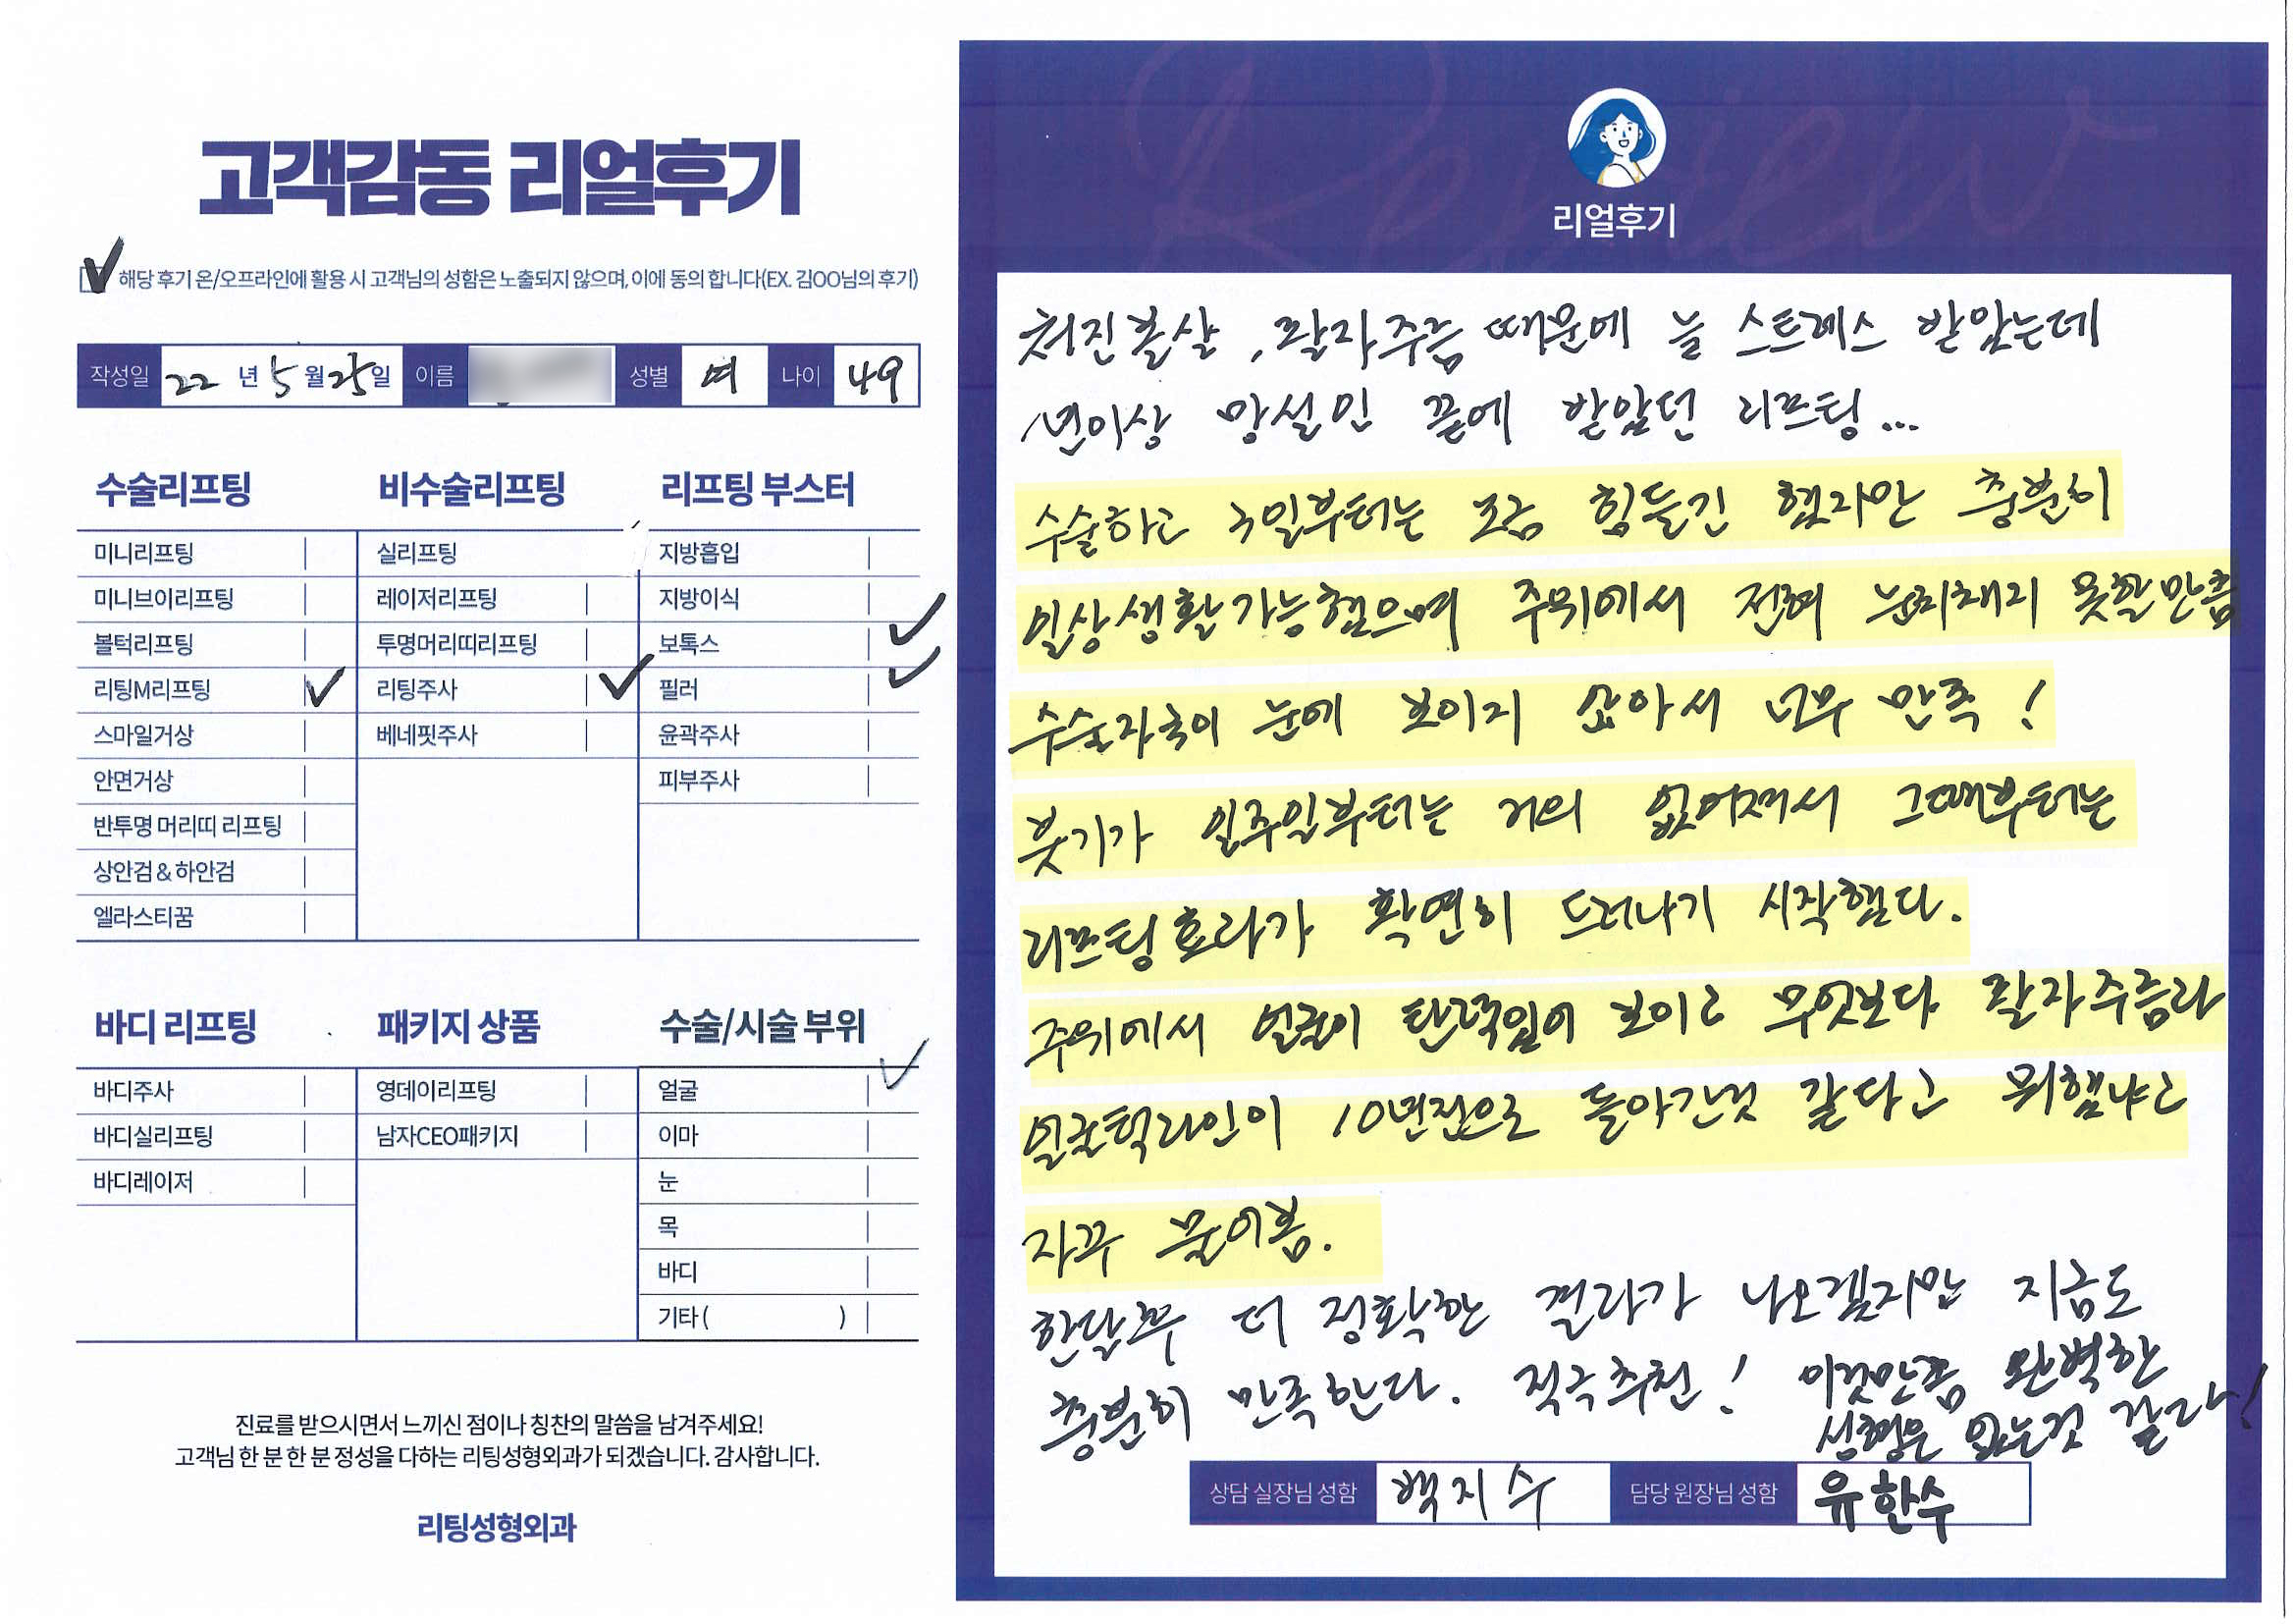 고객감동 리얼후기
해당 후기 온/오프라인에 활용 시 고객님의 성함은 노출되지 않으며, 이에 동의 합니다(EX. 김OO님의 후기)
작성일 22 년 5 월 25 일 이름 성별 여 나이 49
수술리프팅
미니리프팅
미니브이리프팅
볼턱리프팅
리팅M리프팅
스마일거상
안면거상
반투명 머리띠 리프팅
상안검 & 하안검
엘라스티꿈
비수술리프팅
실리프팅
레이저리프팅
투명머리띠리프팅
리팅주사
베네핏주사
리프팅 부스터
지방흡입
지방이식
보톡스
필러
윤곽주사
피부주사
바디 리프팅
바디주사
바디실리프팅
바디레이저
패키지 상품
영데이리프팅
남자CEO패키지
수술/시술 부위
얼굴
이마
눈
목
바디
기타 ( )
진료를 받으시면서 느끼신 점이나 칭찬의 말씀을 남겨주세요!
고객님 한 분 한 분 정성을 다하는 리팅성형외과가 되겠습니다. 감사합니다.
리팅성형외과
Review
리얼후기
처진볼살, 팔자주름 때문에 늘 스트레스 받았는데
1년이상 망설인 끝에 받았던 리프팅...
수술하고 3일부터는 조금 힘들긴 했지만 충분히
일상생활가능했으며 주위에서 전혀 눈치채지 못할만큼
수술자국이 눈에 보이지 않아서 너무 만족!
붓기가 일주일부터는 거의 없어져서 그때부터는
리프팅효과가 확연히 드러나기 시작했다.
주위에서 얼굴이 탄력있어 보이고 무엇보다 팔자주름과
얼굴턱라인이 10년전으로 돌아간것 같다고 뭐했냐고
자꾸 물어봄.
한달후 더 정확한 결과가 나오겠지만 지금도
충분히 만족한다. 적극추천! 이것만큼 완벽한
성형은 없는것 같다!
상담 실장님 성함 백지수 담당 원장님 성함 유한수